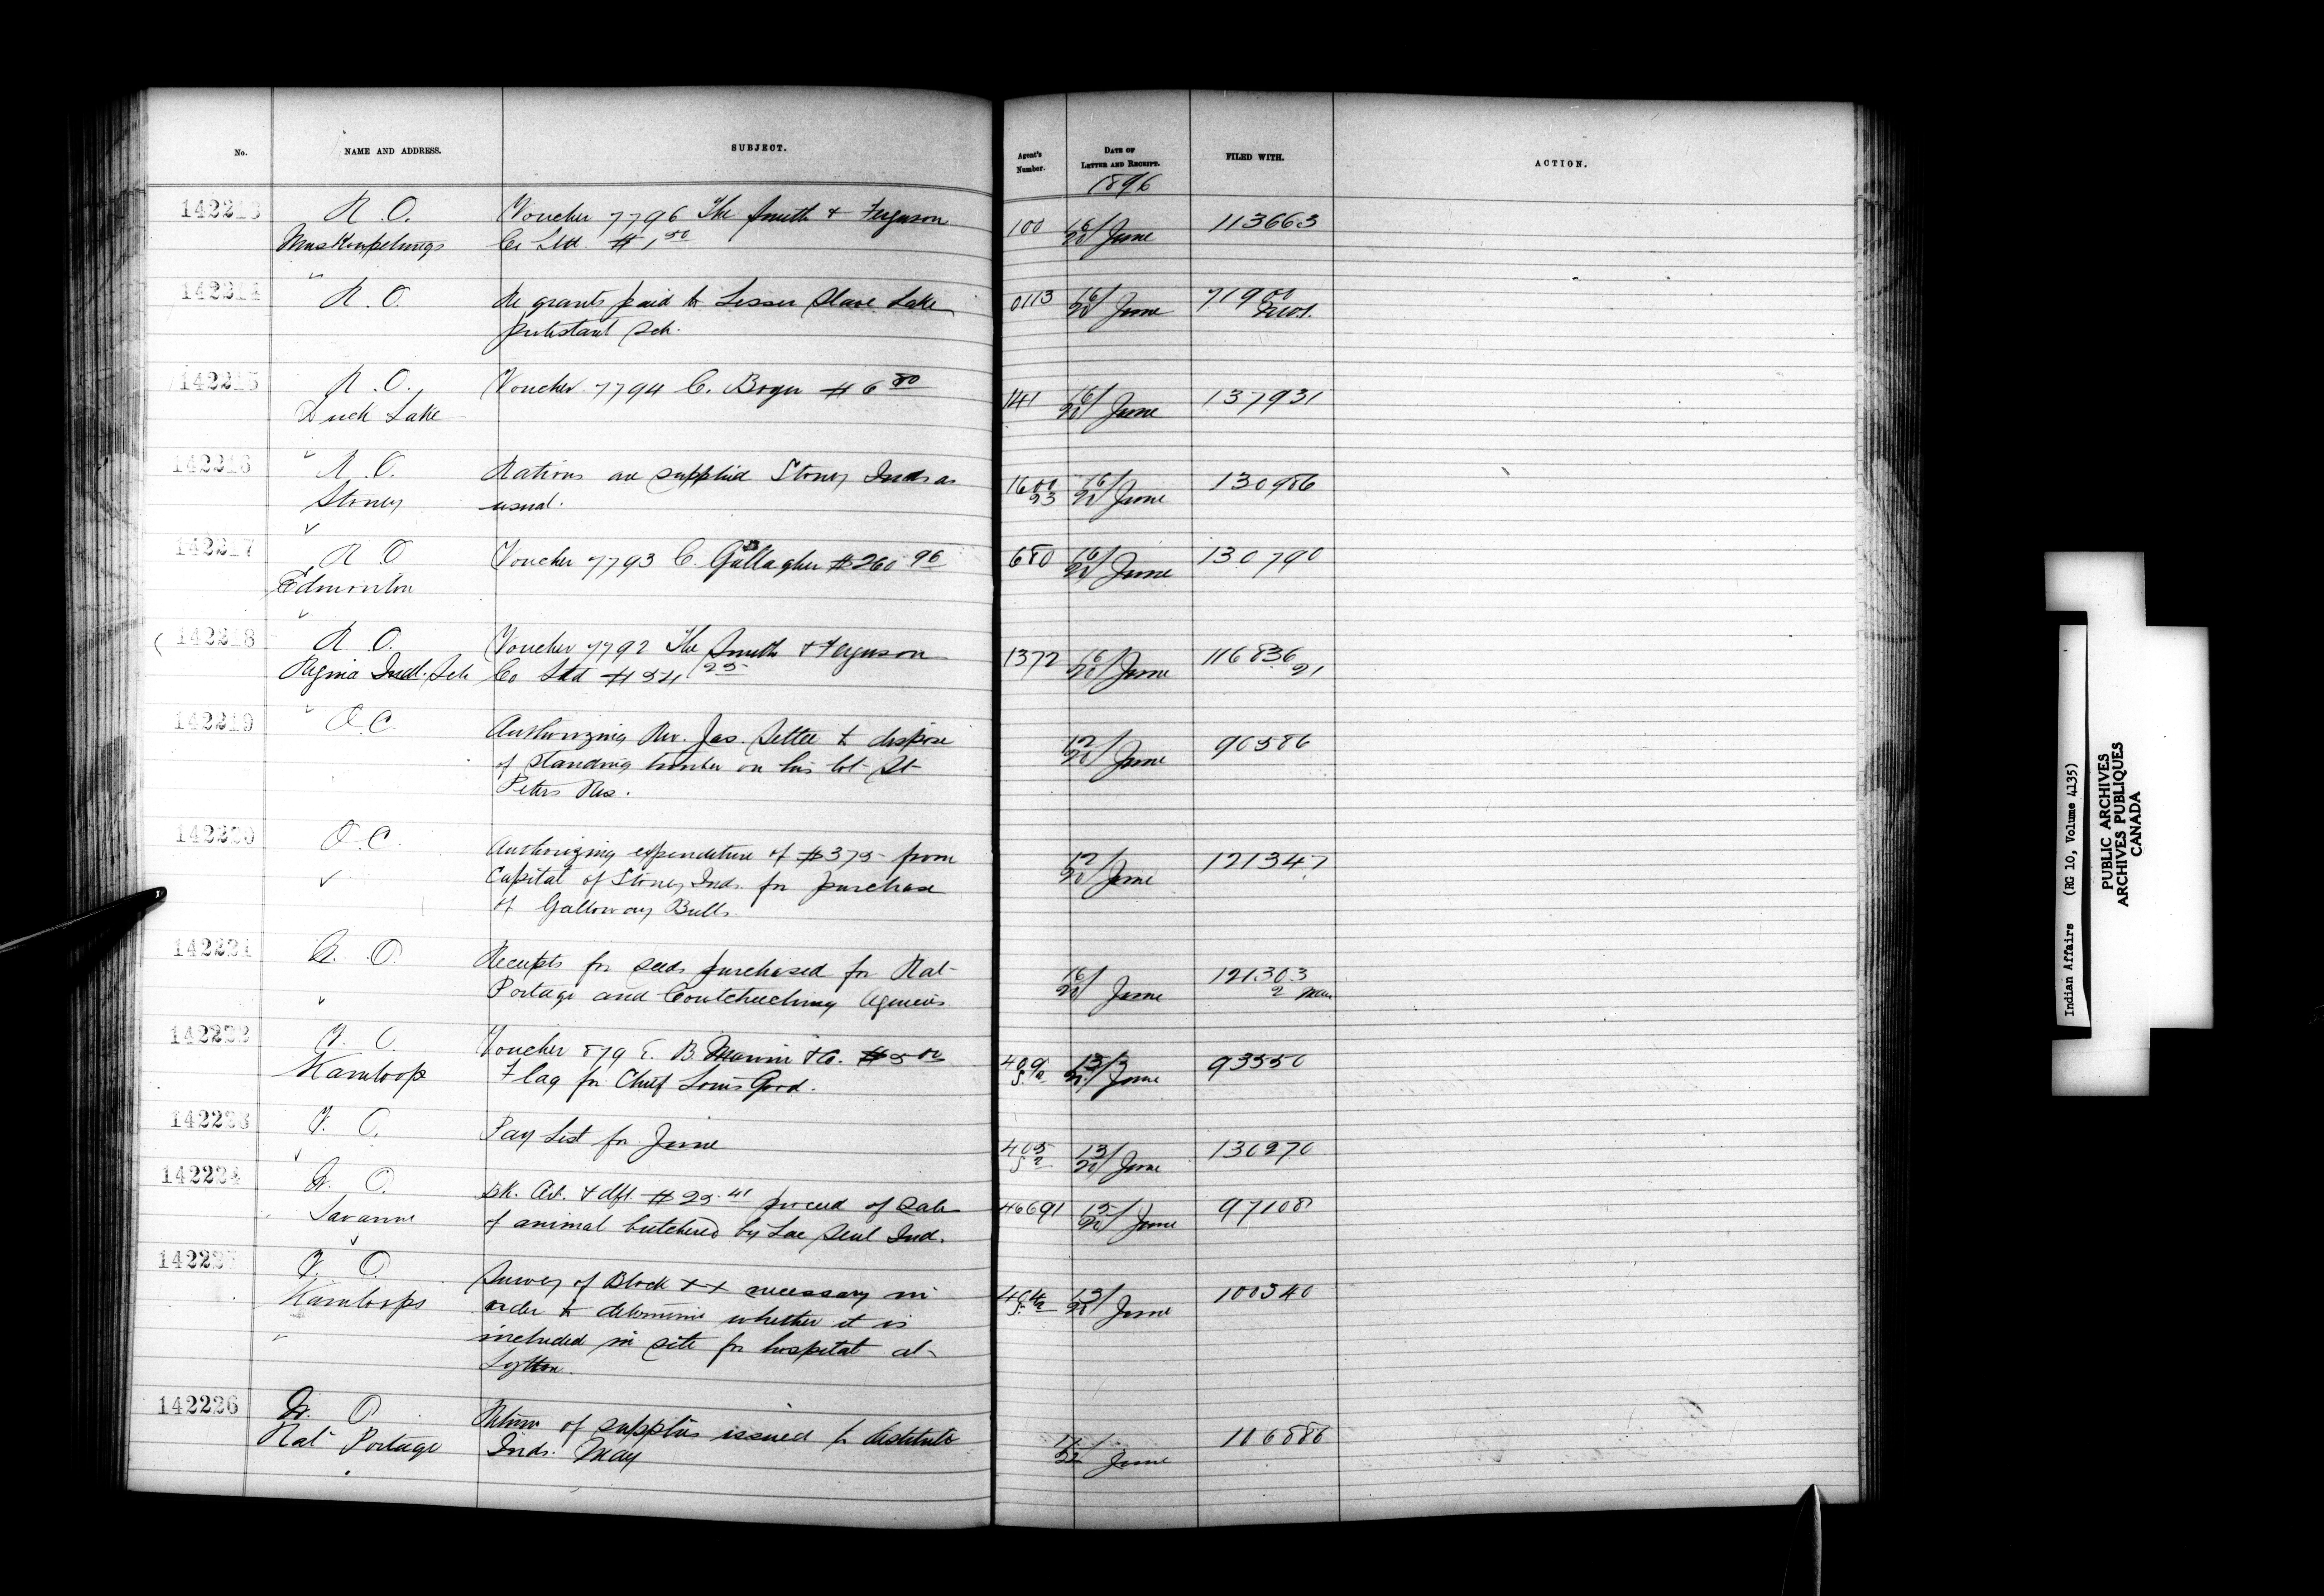 No. NAME AND ADDRESS. SUBJECT. Agent's Number. DATE OF LETTER AND RECEIPT. FILED WITH. ACTION.
1896
142213 R. O. Voucher 7796 The Smith & Ferguson 100 16/20 June 113663
Muskowpetungs Co Ltd. $1.50
142214 R. O. Re grants paid to Lesser Slave Lake 0113 16/20 June 71900
protestant Sch.
142215 R. O. Voucher 7794 C. Boyer $6 80 141 16/20 June 137931
Duck Lake
142216 R. O. Rations are supplied Stoney Inds as 1600/23 16/20 June 130986
Stoney usual.
142217 R O Voucher 7793 C. Gallagher $260 96 680 16/20 June 130790
Edmonton
142218 R O. Voucher 7792 The Smith & Ferguson 1372 16/20 June 116836
Regina Indl. Sch Co Ltd $54 25 21
142219 O. C. Authorizing Rev. Jas. Settee to dispose 12/20 June 90586
of standing timber on his lot St
Peters Res.
142220 O. C. Authorizing expenditure of $375 from 12/20 June 121347
Capital of Stoney Inds. for purchase
of Galloway Bulls.
142221 W. O. Receipts for seeds purchased for Rat 16/20 June 121303
Portage and Coutcheeching Agencies 2 Man
142222 V. O. Voucher 879 E. B. & Co. $5 00 June 93550
Kamloops Flag for Chief Louis Good.
142223 V. O. Pay List for June 405 13/20 June 130270
142224 W. O. Bk. Rt. & dft. $25.41 proceed of sale 46691 15/20 June 97108
Savanne of animal butchered by Lac Seul Ind.
142225 V. O. Survey of Block XX necessary in 404 13/20 June 100340
Kamloops order to determine whether it is
included in site for hospital at
Lytton.
142226 W. O. Return of supplies issued to destitute June 106886
Rat Portage Inds. May
Indian Affairs (RG 10, Volume 4135)
PUBLIC ARCHIVES
ARCHIVES PUBLIQUES
CANADA